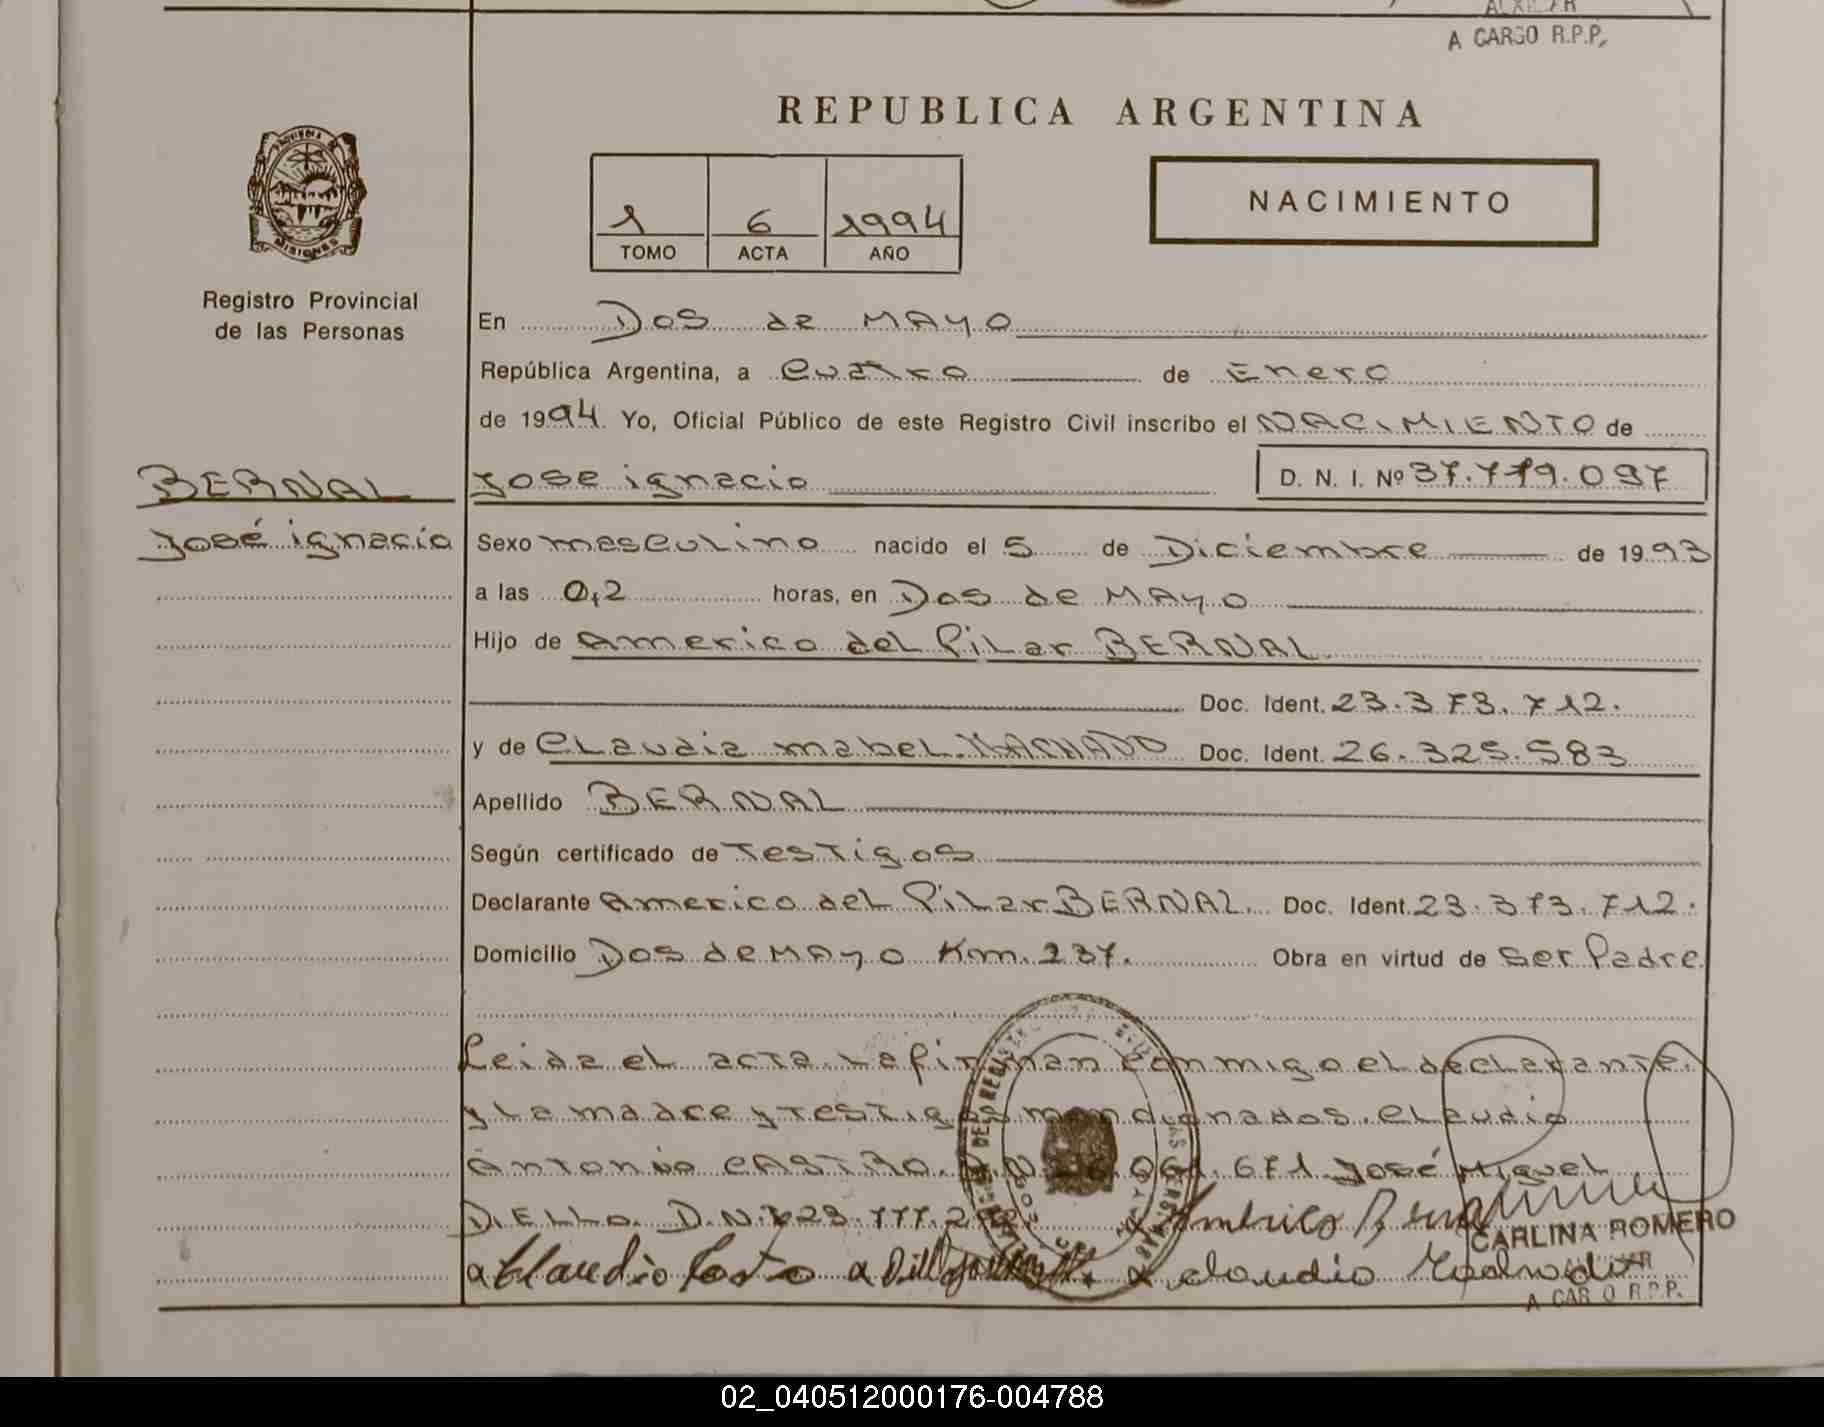 A CARGO R.P.P.
REPUBLICA ARGENTINA
NACIMIENTO
1 6 1994
TOMO ACTA AÑO
MISIONES
Registro Provincial
de las Personas
En Dos de MAYO
República Argentina, a cuatro de Enero
de 1994. Yo, Oficial Público de este Registro Civil inscribo el NACIMIENTO de
BERNAL
José ignacio
Jose ignacio D. N. I. Nº 37.779.097
Sexo masculino nacido el 5 de Diciembre de 1993
a las 0,2 horas, en Dos de MAYO
Hijo de Americo del Pilar BERNAL
Doc. Ident. 23.373.712.
y de Claudia mabel MACHADO Doc. Ident. 26.325.583
Apellido BERNAL
Según certificado de Testigos
Declarante Americo del Pilar BERNAL. Doc. Ident. 23.373.712.
Domicilio Dos de MAYO Km. 237. Obra en virtud de Ser Padre
Leida el acta La firman conmigo el declarante.
y La madre y testigos mencionados. Claudio
Antonio CASTRO. 671 José Miguel
DIELLO. D.N.I 23.777.
CARLINA ROMERO
A CARGO R.P.P.
02_040512000176-004788